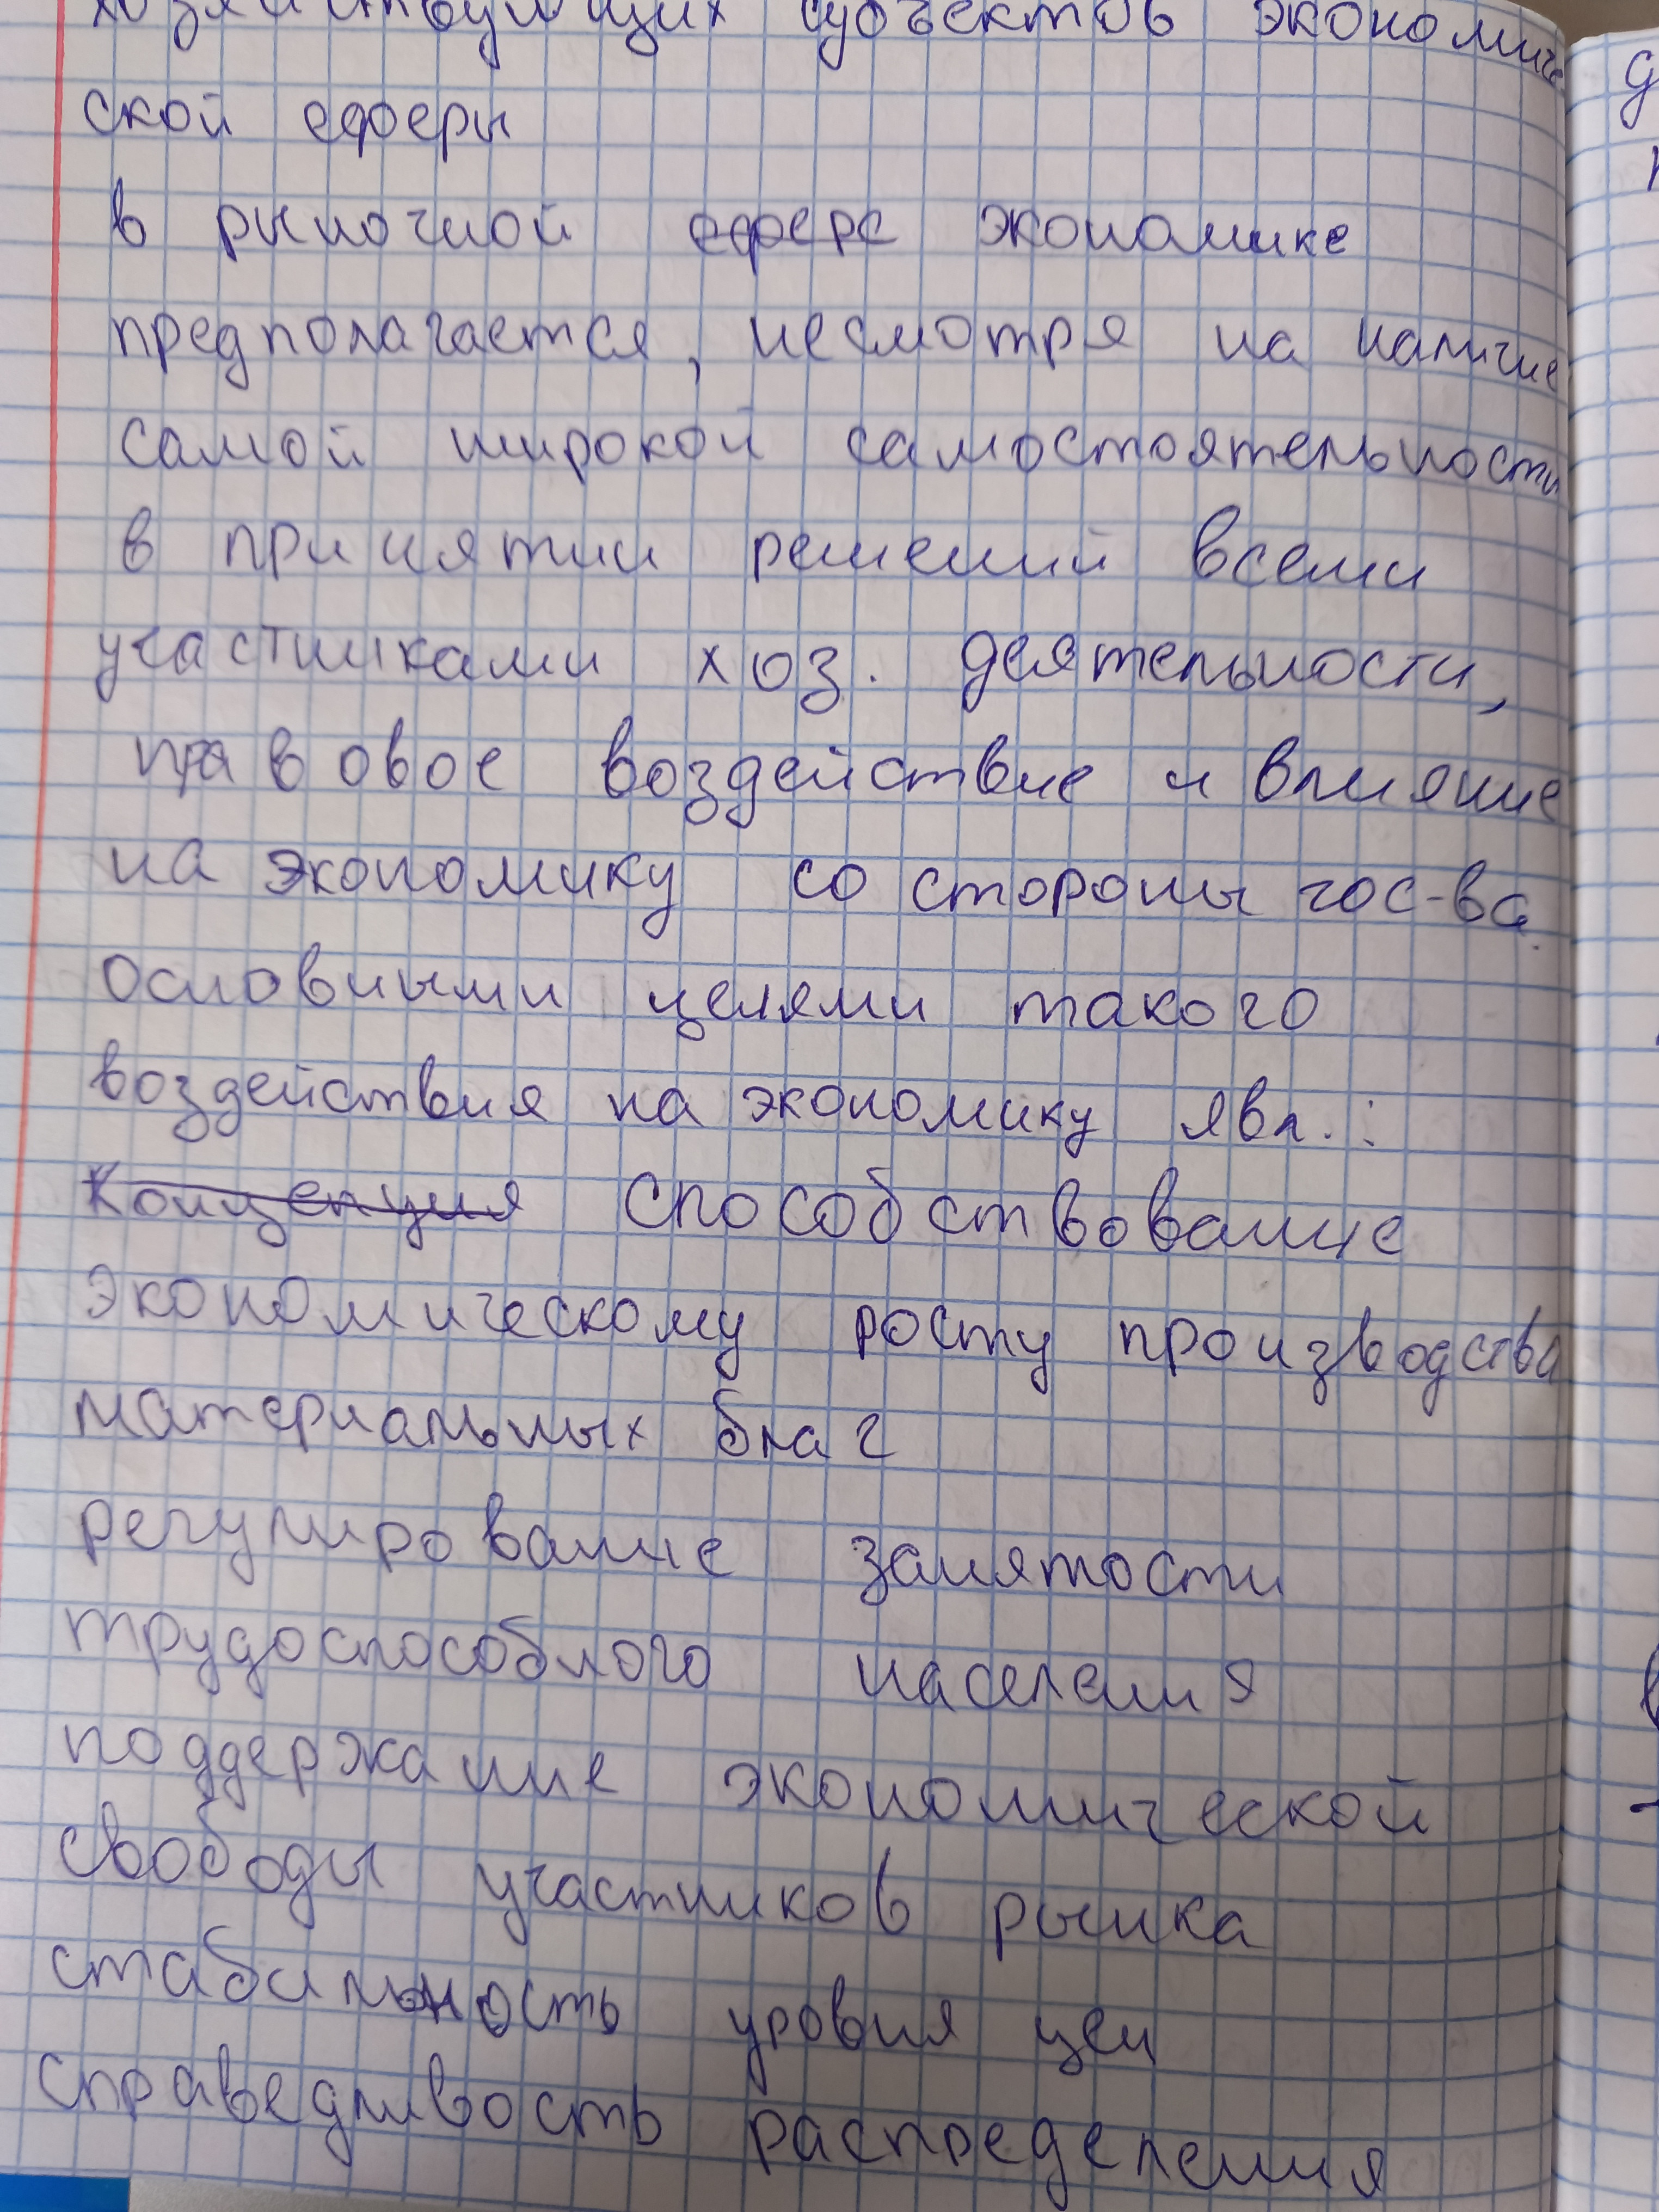 хозяйствующих субъектов экономиче
ской сферы
в рыночной сфере экономике
предполагается, несмотря на наличие
самой широкой самостоятельности
в принятии решений всеми
участниками хоз. деятельности,
правовое воздействие и влияние
на экономику со стороны гос-ва.
Основными целями такого
воздействия на экономику явл. :
Концепция способствование
экономическому росту производства
материальных благ
регулирование занятости
трудоспособного населения
поддержание экономической
свободы участников рынка
стабильность уровня цен
справедливость распределения